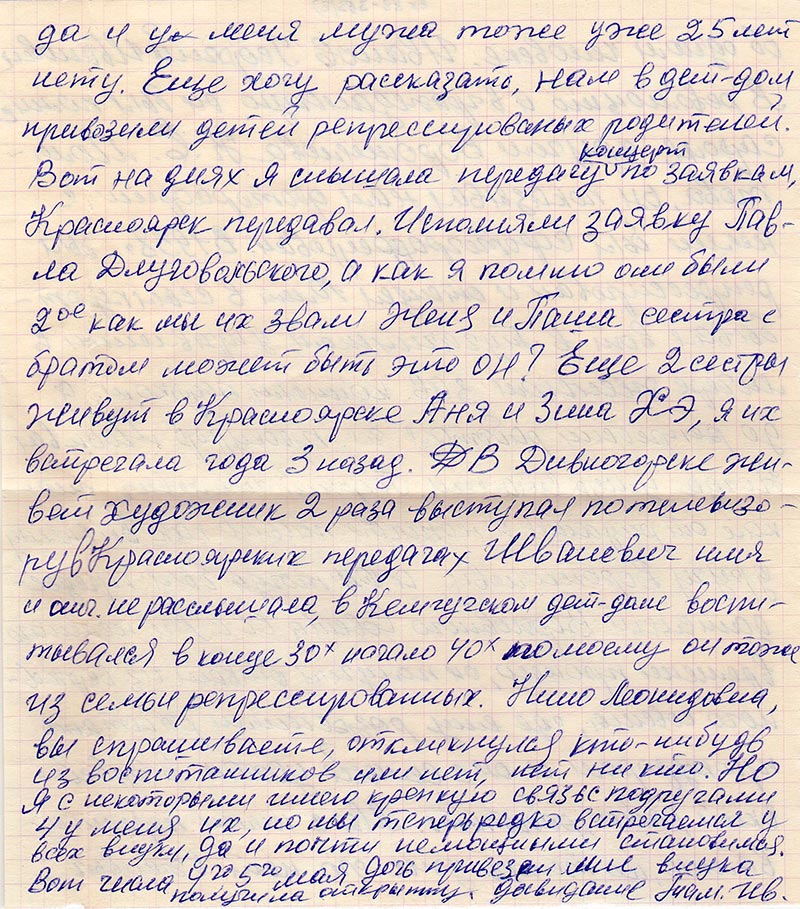 да и у меня мужа тоже уже 25 лет
нету. Еще хочу рассказать, нам в дет-дом
привозили детей репрессированых родителей.
концерт
Вот на днях я слышала передачу по заявкам,
Красноярск передавал. Исполняли заявку Пав-
ла Длуговольского, а как я помню они были
2ое как мы их звали Женя и Паша сестра с
братом может быть это он? Еще 2 сестры
живут в Красноярске Аня и Зина Хэ, я их
встречала года 3 назад. В Дивногорске жи-
вет художник 2 раза выступал по телевизо-
ру в Красноярских передачах Шваневич имя
и отч. не расслышала, в Кемчугском дет-доме воспи-
тывался в конце 30х начало 40х помоему он тоже
из семьи репрессированных. Нино Леонидовна,
вы спрашиваете, откликнулся кто-нибудь
из воспитанников или нет, нет никто. Но
я с некоторыми имею крепкую связь с подругами
4 у меня их, но мы теперь редко встречаемся у
всех внуки, да и почти немощными становимся.
Вот числа 4го 5го мая дочь привезет мне внука
получила открытку. досвидание Там. Ив.